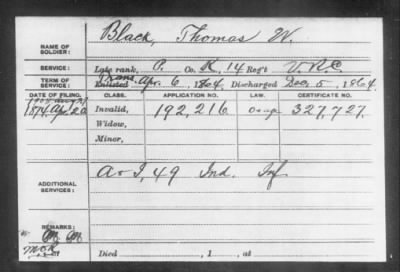 Black, Thomas W.
NAME OF SOLDIER:
SERVICE: Late rank, P. Co. K, 14 Reg't V.R.C.
TERM OF SERVICE: Enlisted Trans. Apr. 6, 1864. Discharged Dec. 5, 1864.
DATE OF FILING. CLASS. APPLICATION NO. LAW. CERTIFICATE NO.
1874 Apr. 20 Invalid, 192,216 327,727.
Widow,
Minor,
ADDITIONAL SERVICES: A & I, 49 Ind. Inf.
REMARKS:
Died , 1 , at